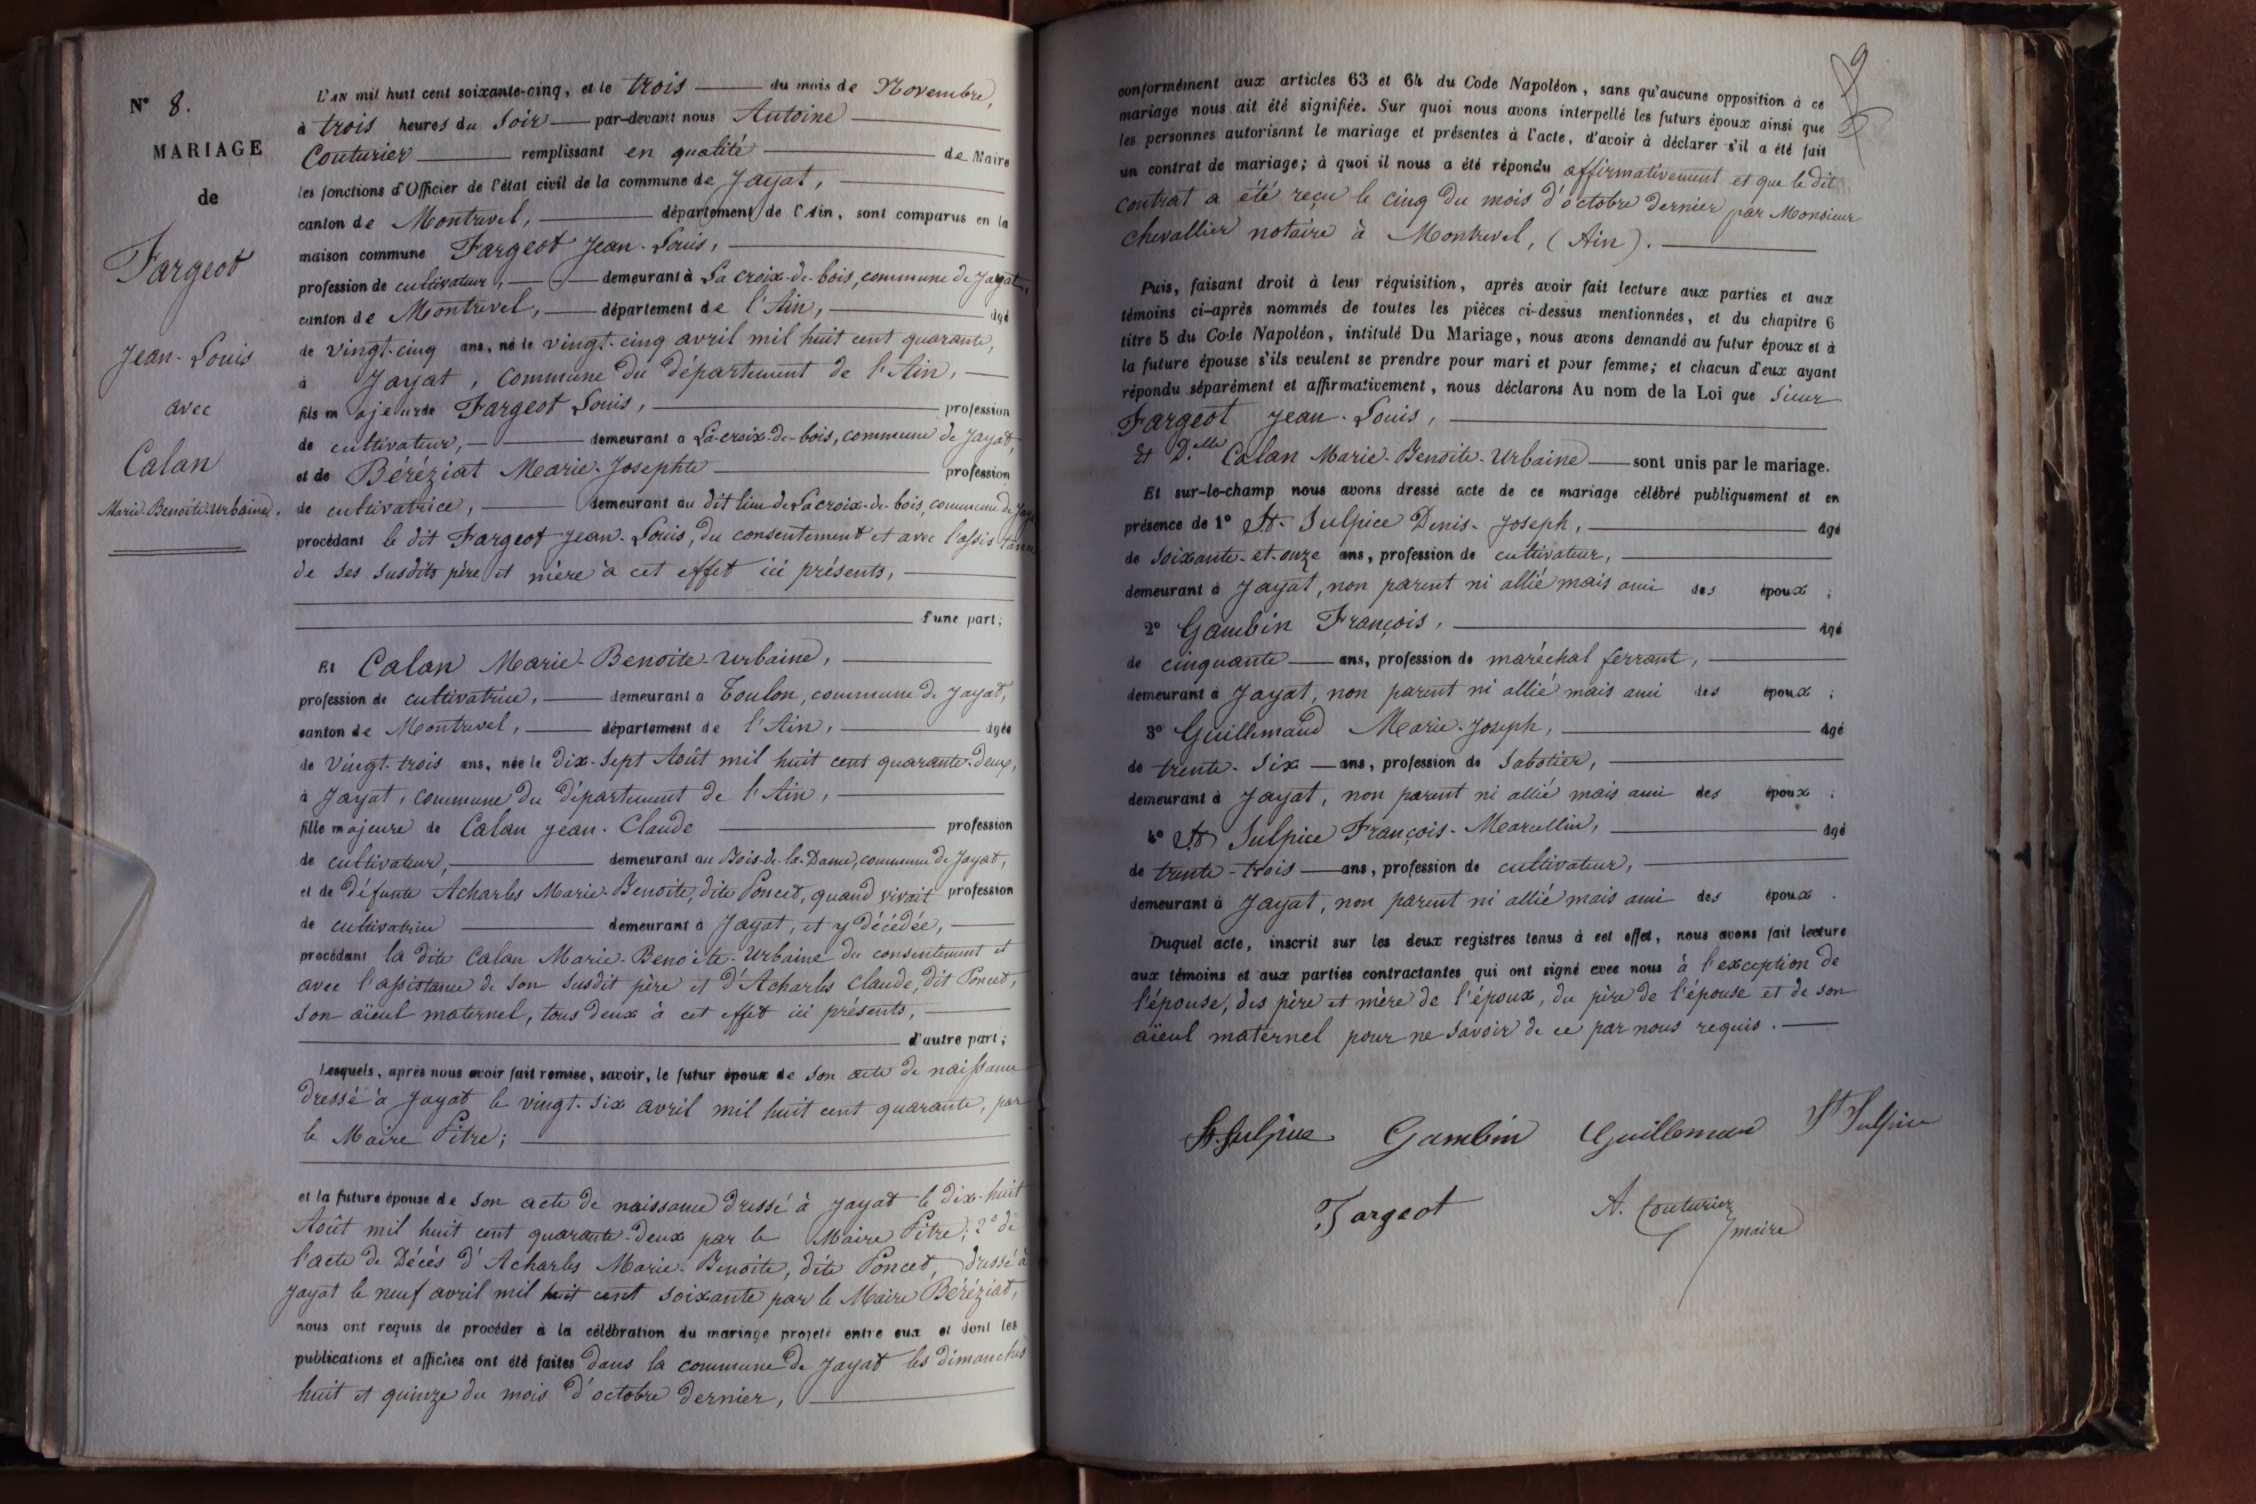 N° 8.
MARIAGE
de
Fargeot
Jean-Louis
avec
Calan
Marie-Benoite-Urbaine.
L'AN mil huit cent soixante-cinq, et le trois du mois de Novembre,
à trois heures du soir par-devant nous Antoine
Couturier remplissant en qualité de Maire
les fonctions d'Officier de l'état civil de la commune de Jayat,
canton de Montrevel, département de l'Ain, sont comparus en la
maison commune Fargeot Jean-Louis,
profession de cultivateur, demeurant à La croix-de-bois, commune de Jayat,
canton de Montrevel, département de l'Ain, âgé
de vingt-cinq ans, né le vingt-cinq avril mil huit cent quarante,
à Jayat, commune du département de l'Ain,
fils majeur de Fargeot Louis, profession
de cultivateur, demeurant à La-croix-de-bois, commune de Jayat,
et de Béréziat Marie-Josephte profession
de cultivatrice, demeurant au dit lieu de La croix-de-bois, commune de Jayat
procédant le dit Fargeot Jean-Louis, du consentement et avec l'assistance
de ses susdits père et mère à cet effet ici présents,
d'une part;
Et Calan Marie-Benoite-Urbaine,
profession de cultivatrice, demeurant à Toulon, commune de Jayat,
canton de Montrevel, département de l'Ain, âgée
de vingt-trois ans, née le dix-sept Août mil huit cent quarante-deux,
à Jayat, commune du département de l'Ain,
fille majeure de Calan Jean-Claude profession
de cultivateur, demeurant au Bois-de-la-Dame, commune de Jayat,
et de défunte Acharles Marie-Benoite, dite Poncet, quand vivait profession
de cultivatrice demeurant à Jayat, et y décédée,
procédant la dite Calan Marie-Benoite-Urbaine du consentement et
avec l'assistance de son susdit père et d'Acharles Claude, dit Poncet,
son aïeul maternel, tous deux à cet effet ici présents,
d'autre part;
Lesquels, après nous avoir fait remise, savoir, le futur époux de son acte de naissance
dressé à Jayat le vingt-six avril mil huit cent quarante, par
le Maire Pitre;
et la future épouse de son acte de naissance dressé à Jayat le dix-huit
Août mil huit cent quarante-deux par le Maire Pitre; 2° de
l'acte de Décès d'Acharles Marie-Benoite, dite Poncet, dressé à
Jayat le neuf avril mil huit cent soixante par le Maire Béréziat,
nous ont requis de procéder à la célébration du mariage projeté entre eux et dont les
publications et affiches ont été faites dans la commune de Jayat les dimanches
huit et quinze du mois d'octobre dernier,
conformément aux articles 63 et 64 du Code Napoléon, sans qu'aucune opposition à ce
mariage nous ait été signifiée. Sur quoi nous avons interpellé les futurs époux ainsi que
les personnes autorisant le mariage et présentes à l'acte, d'avoir à déclarer s'il a été fait
un contrat de mariage; à quoi il nous a été répondu affirmativement et que le dit
contrat a été reçu le cinq du mois d'octobre dernier par Monsieur
Chevallier notaire à Montrevel, (Ain).
Puis, faisant droit à leur réquisition, après avoir fait lecture aux parties et aux
témoins ci-après nommés de toutes les pièces ci-dessus mentionnées, et du chapitre 6
titre 5 du Code Napoléon, intitulé Du Mariage, nous avons demandé au futur époux et à
la future épouse s'ils veulent se prendre pour mari et pour femme; et chacun d'eux ayant
répondu séparément et affirmativement, nous déclarons Au nom de la Loi que Sieur
Fargeot Jean-Louis,
Et D.elle Calan Marie-Benoite-Urbaine sont unis par le mariage.
Et sur-le-champ nous avons dressé acte de ce mariage célébré publiquement et en
présence de 1° St. Sulpice Denis-Joseph, âgé
de soixante-et-onze ans, profession de cultivateur,
demeurant à Jayat, non parent ni allié mais ami des époux;
2° Gambin François, âgé
de cinquante ans, profession de maréchal ferrant,
demeurant à Jayat, non parent ni allié mais ami des époux;
3° Guillemaud Marie-Joseph, âgé
de trente-six ans, profession de sabotier,
demeurant à Jayat, non parent ni allié mais ami des époux;
4° St Sulpice François-Marcellin, âgé
de trente-trois ans, profession de cultivateur,
demeurant à Jayat, non parent ni allié mais ami des époux.
Duquel acte, inscrit sur les deux registres tenus à cet effet, nous avons fait lecture
aux témoins et aux parties contractantes qui ont signé avec nous à l'exception de
l'épouse, des père et mère de l'époux, du père de l'épouse et de son
aïeul maternel pour ne savoir de ce par nous requis.
St. Sulpice Gambin Guillemaud St Sulpice
Fargeot A. Couturier
maire